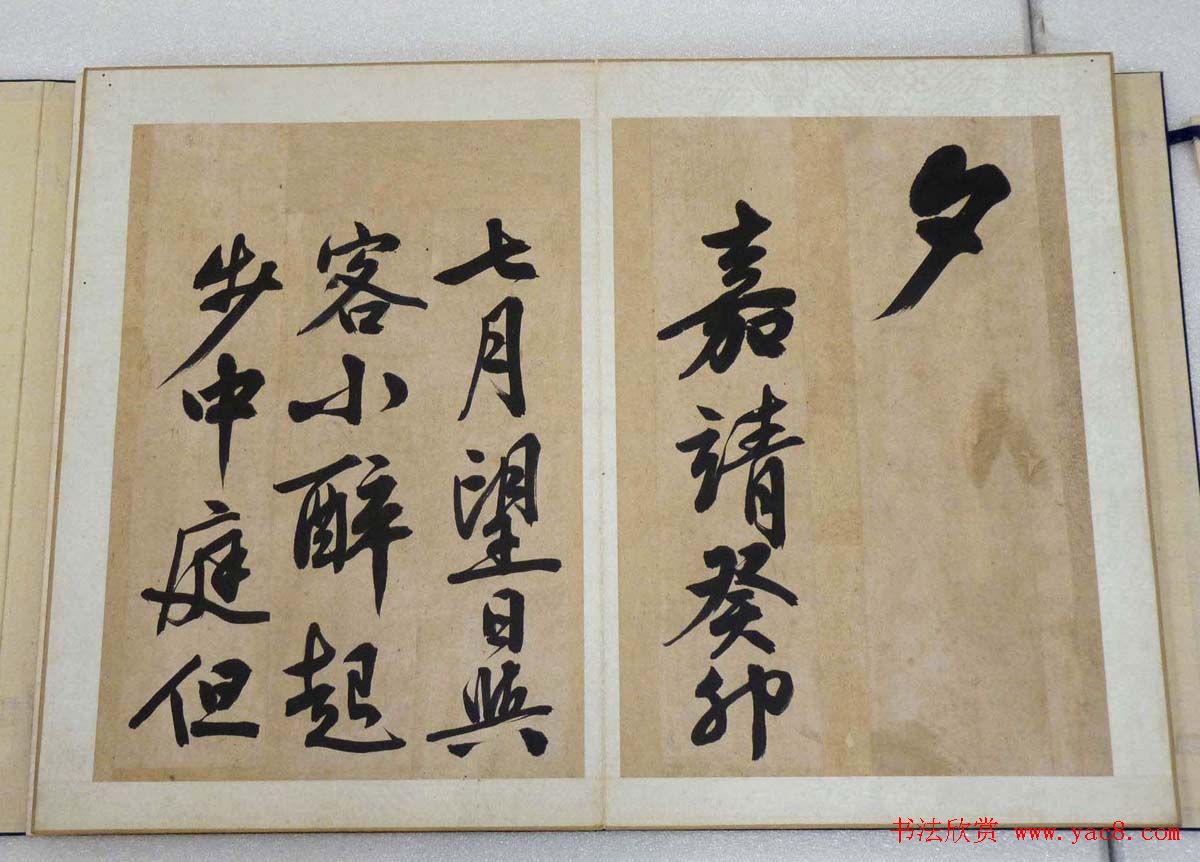 夕
嘉靖癸卯
七月望日與
客小醉起
步中庭但
书法欣赏 www.yac8.com